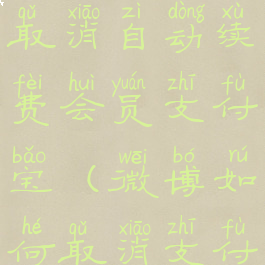 qǔ xiāo zì dòng xù
取消自动续
fèi huì yuán zhī fù
费会员支付
bǎo wēi bó rú
宝（微博如
hé qǔ xiāo zhī fù
何取消支付